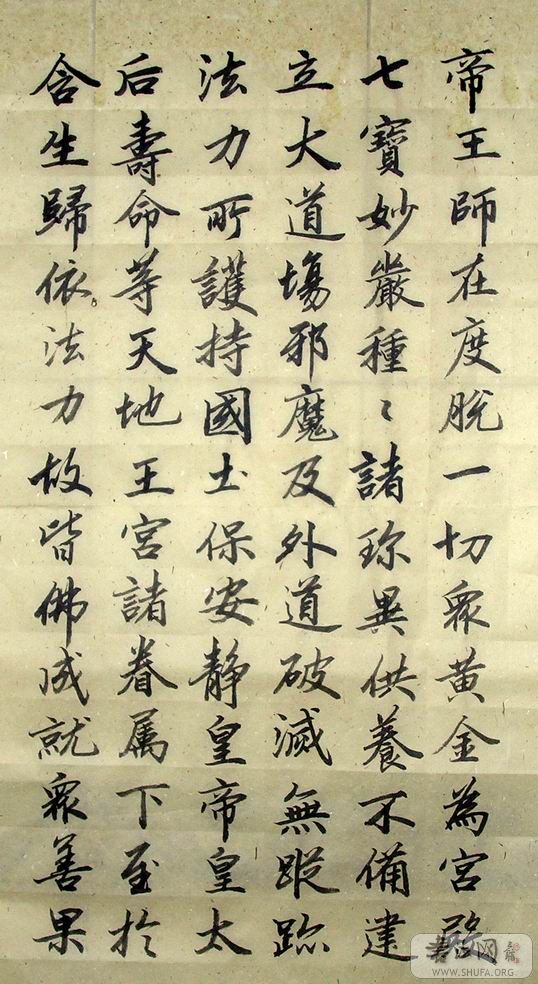 帝王師在度脫一切眾黃金為宮殿
七寶妙嚴種〻諸珎異供養不備建
立大道場邪魔及外道破滅無蹤跡
法力所護持國土保安靜皇帝皇太
后壽命等天地王宮諸眷属下至於
含生歸依法力故皆佛成就眾善果
书法网
WWW.SHUFA.ORG